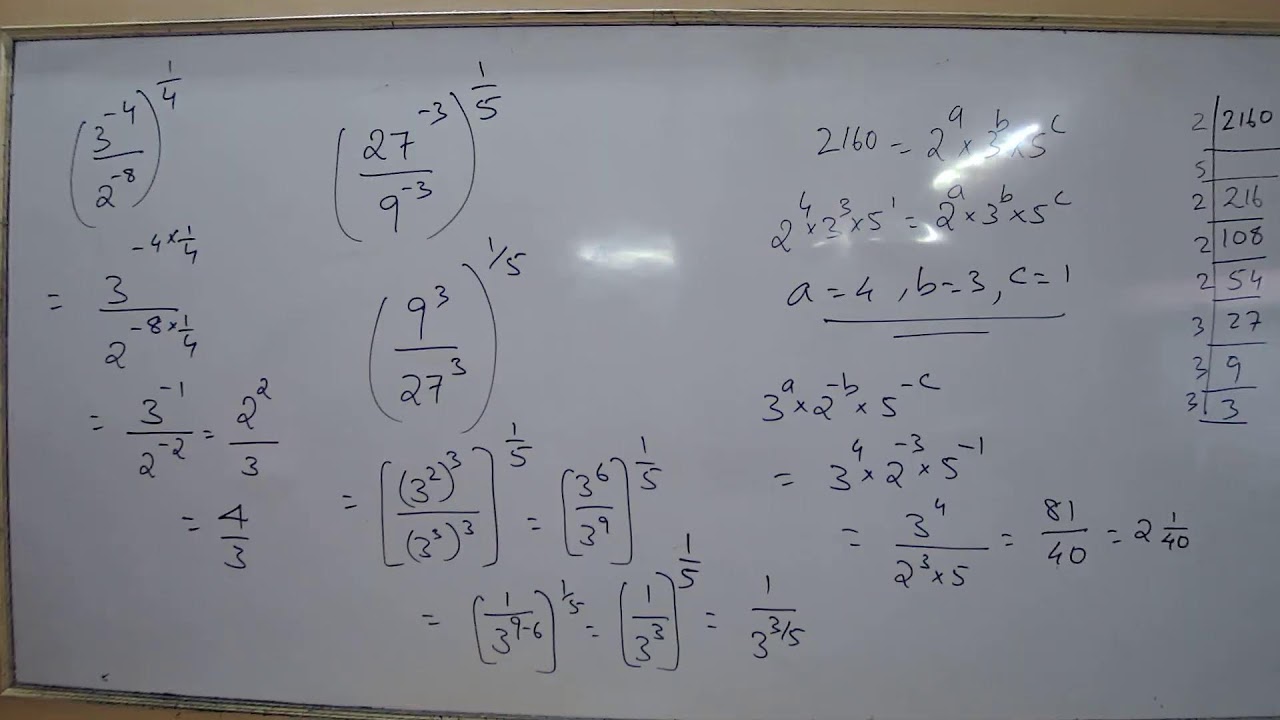 (3^-4 / 2^-8)^1/4
= 3^(-4×1/4) / 2^(-8×1/4)
= 3^-1 / 2^-2 = 2^2 / 3
= 4/3
(27^-3 / 9^-3)^1/5
(9^3 / 27^3)^1/5
= [(3^2)^3 / (3^3)^3]^1/5 = [3^6 / 3^9]^1/5
= [1 / 3^(9-6)]^1/5 = [1 / 3^3]^1/5 = 1 / 3^3/5
2160 = 2^a × 3^b × 5^c
2^4 × 3^3 × 5^1 = 2^a × 3^b × 5^c
a = 4 , b = 3 , c = 1
3^a × 2^-b × 5^-c
= 3^4 × 2^-3 × 5^-1
= 3^4 / 2^3 × 5 = 81/40 = 2 1/40
2 | 2160
5 |
2 | 216
2 | 108
2 | 54
3 | 27
3 | 9
3 | 3